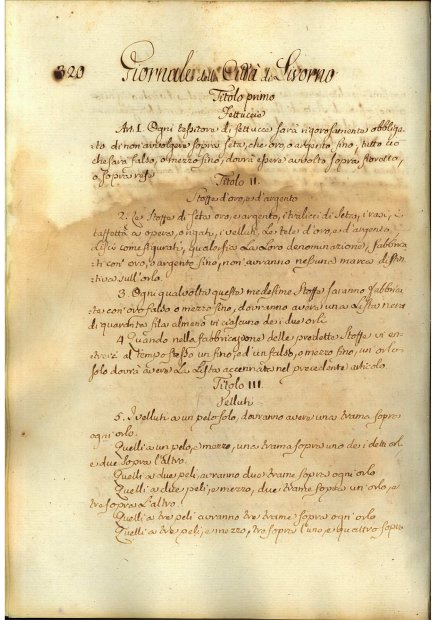 320 Giornale della Città di Livorno
Titolo primo
Fettuccie
Art. I. Ogni tessitore di fettucce sarà rigorosamente obbliga
to di non avvolgere sopra seta, che oro, o argento, fino, tutto ciò
che sarà falso, o mezzo fino, dovrà essere avvolto sopra fioretto,
o sopra refe
Titolo II.
Stoffe d'oro, e d'argento
2. Le Stoffe di seta oro, e argento, i tralicci di seta, i rasi, i
taffettà a opera, o rigati, i velluti, le tele d'oro, e d'argento,
lisci come figurati, qualsisia la loro denominazione, fabbrica
ti con oro, o argento fino, non avranno nessuna marca distin
tiva sull'orlo.
3. Ogni qualvolta queste medesime Stoffe saranno fabbrica
te con oro falso o mezzo fino, dovranno avere una Lista nera
di quaranta fila almeno in ciascuno dei due orli
4 Quando nella fabbricazione delle predette Stoffe vi en
trerà al tempo stesso un fino, ed un falso, o mezzo fino, un orlo
solo dovrà avere la Lista accennata nel precedente articolo.
Titolo III.
Velluti
5. I velluti a un pelo solo, dovranno avere una trama sopra
ogni orlo.
Quelli a un pelo, e mezzo, una trama sopra uno dei detti orli
e due sopra l'altro.
Quelli a due peli, avranno due trame sopra ogni orlo
Quelli a due peli, e mezzo, due trame sopra un'orlo, e
tre sopra l'altro.
Quelli a tre peli avranno tre trame sopra ogni orlo
Quelli a tre peli, e mezzo, tre sopra l'uno, e quattro sopra